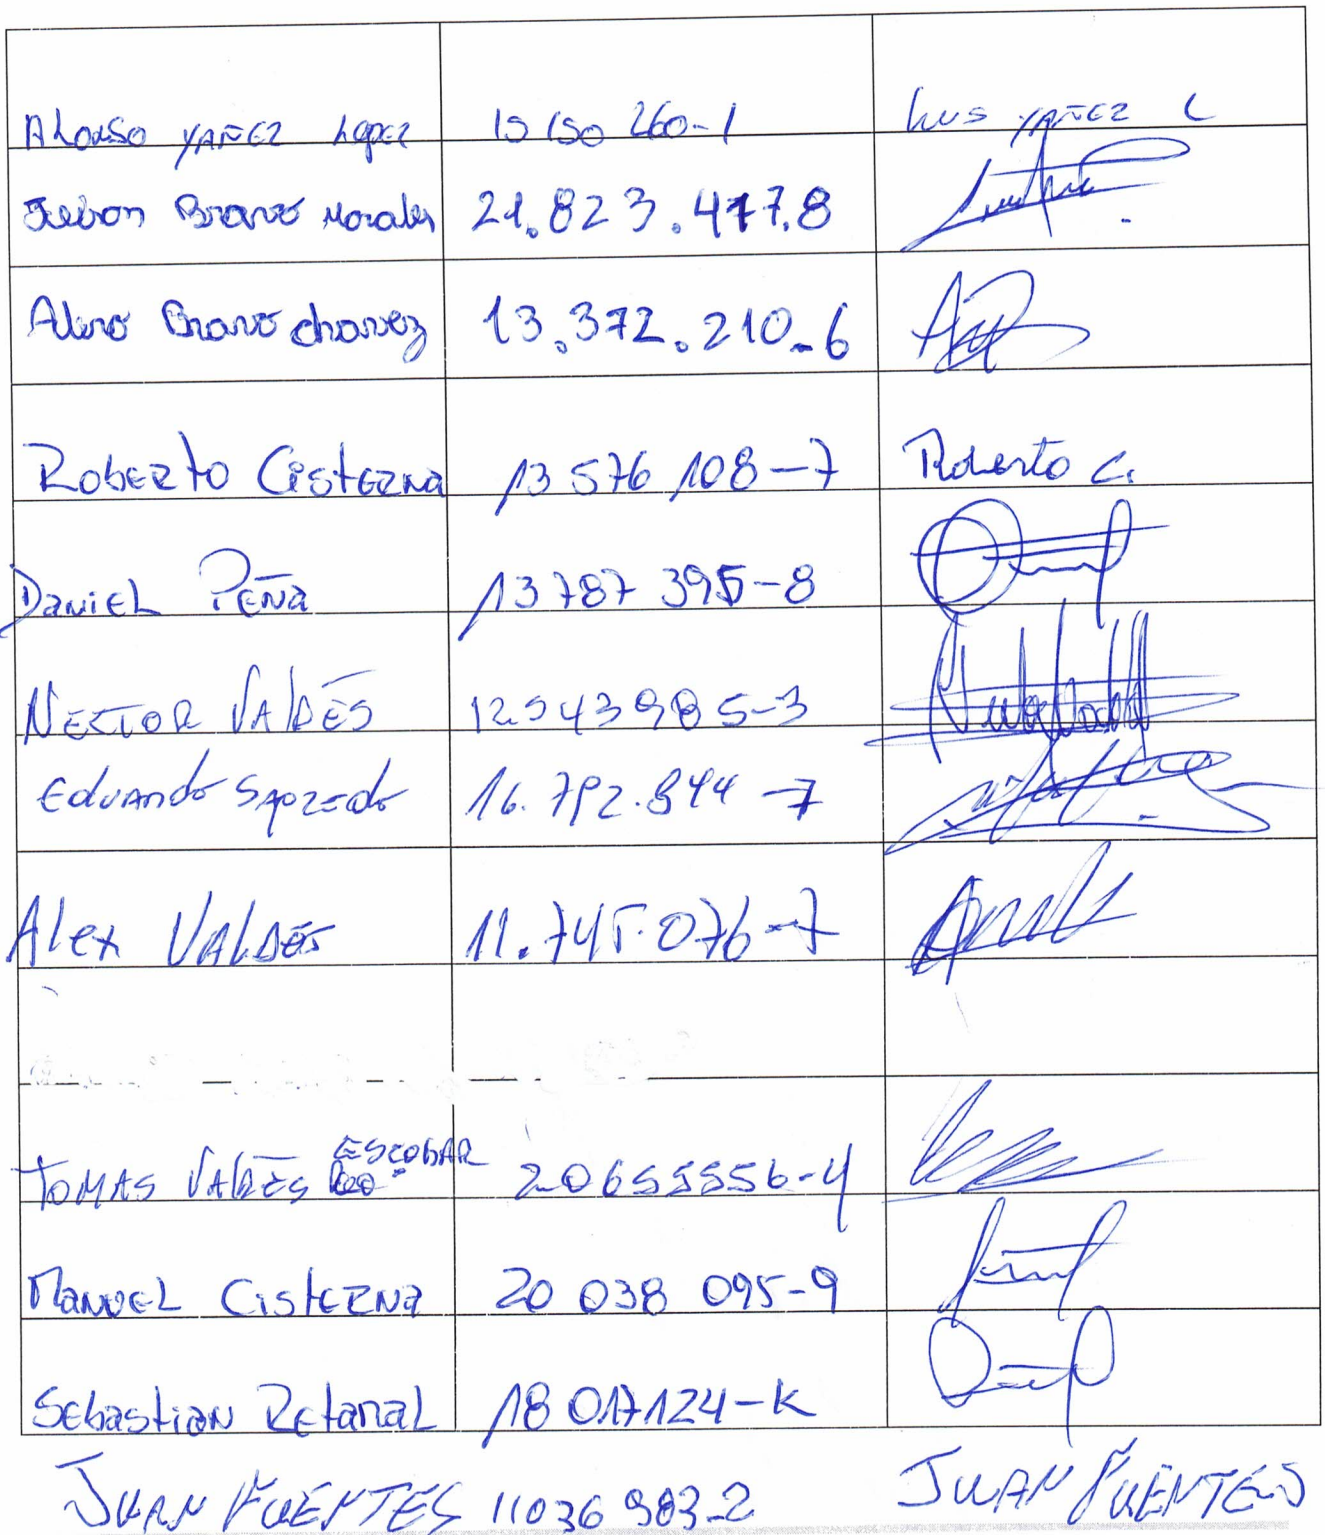 Alonso YAÑEZ López 15 150 260-1 Luis YAÑEZ L
Bravo Morales 21.823.477.8
Bravo Chavez 13.372.210-6
Roberto Cisterna 13 576 108-7 Roberto C.
Daniel Peña 13 787 395-8
NESTOR VALDÉS 12543985-3
Eduardo Sapzedo 16.792.844-7
Alex VALDÉS 11.745.076-7
ESCOBAR
TOMAS VALDÉS 20655556-4
Manuel Cisterna 20 038 095-9
Sebastian Retamal 18 017124-K
JUAN FUENTES 11036983-2 JUAN FUENTES